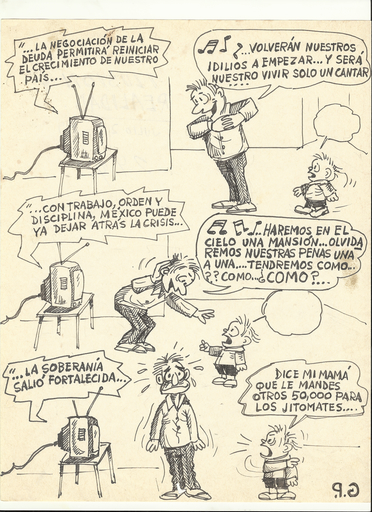 "...LA NEGOCIACIÓN DE LA
DEUDA PERMITIRÁ REINICIAR
EL CRECIMIENTO DE NUESTRO
PAIS...
?...VOLVERÁN NUESTROS
IDILIOS A EMPEZAR...Y SERÁ
NUESTRO VIVIR SOLO UN CANTAR
"...CON TRABAJO, ORDEN Y
DISCIPLINA, MÉXICO PUEDE
YA DEJAR ATRÁS LA CRISIS...
...HAREMOS EN EL
CIELO UNA MANSIÓN...OLVIDA
REMOS NUESTRAS PENAS UNA
A UNA....TENDREMOS COMO..
??COMO..¿COMO?...
"...LA SOBERANÍA
SALIÓ FORTALECIDA...
DICE MI MAMÁ
QUE LE MANDES
OTROS 50,000 PARA
LOS JITOMATES....
G.P.